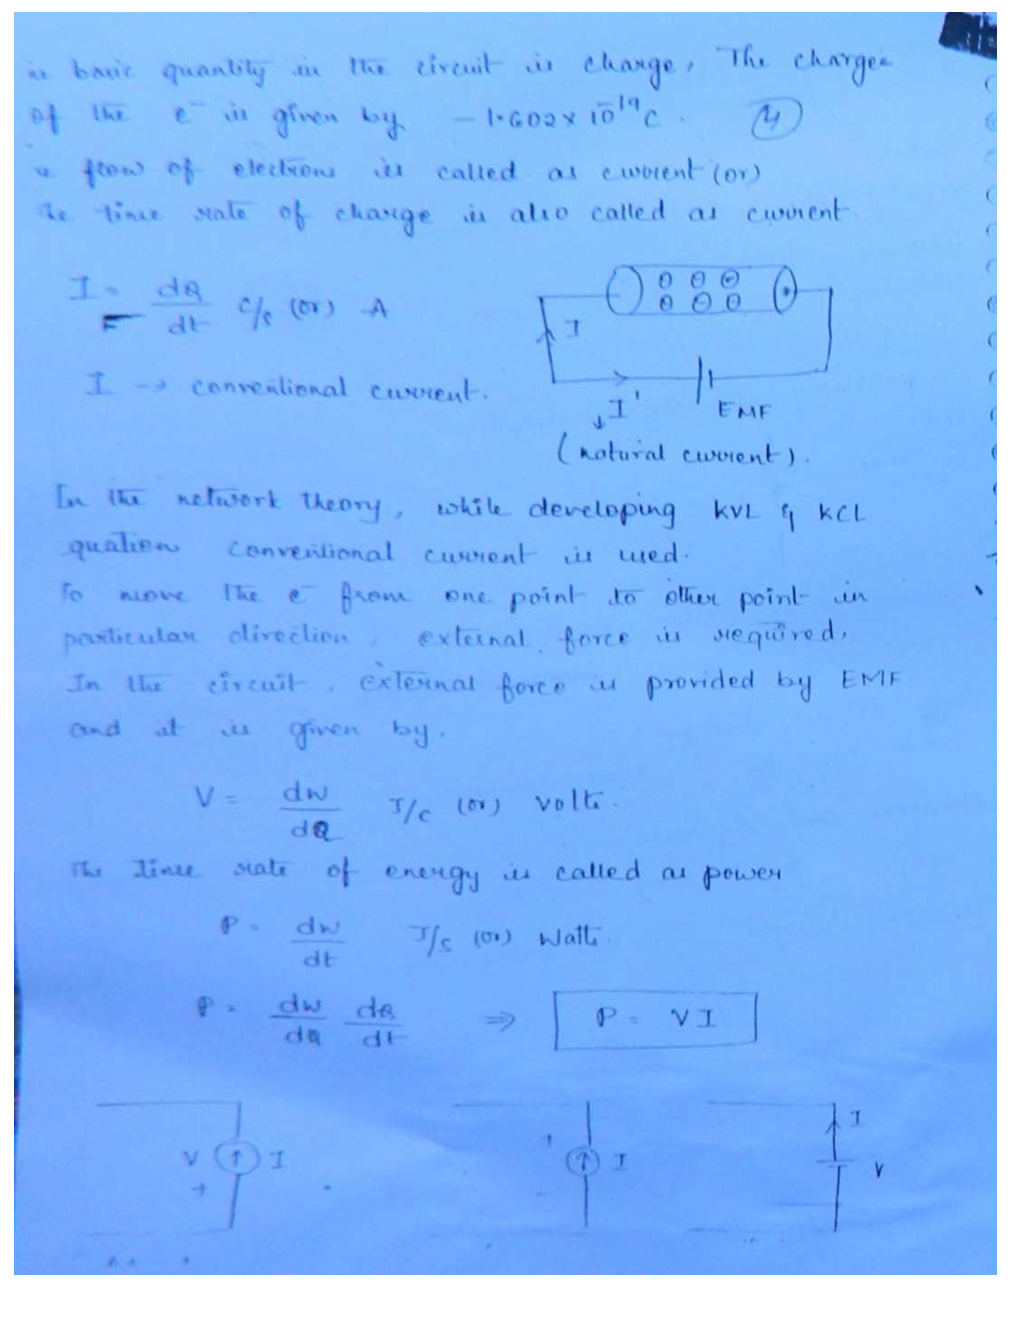 basic quantity in the circuit is charge, The charge
of the e⁻ is given by -1.602 x 10⁻¹⁹ C. 4
flow of electrons is called as current (or)
time rate of charge is also called as current.
I = dQ/dt C/s (or) A
I
I → conventional current.
I' EMF
(natural current).
In the network theory, while developing KVL & KCL
quation conventional current is used.
To move the e⁻ from one point to other point in
particular direction, external force is required,
In the circuit, external force is provided by EMF
and it is given by.
V = dw/dQ J/C (or) volts.
The time rate of energy is called as power
P = dw/dt J/s (or) Watts.
P = dw/dQ dQ/dt ⇒ P = VI
V I + + I I V